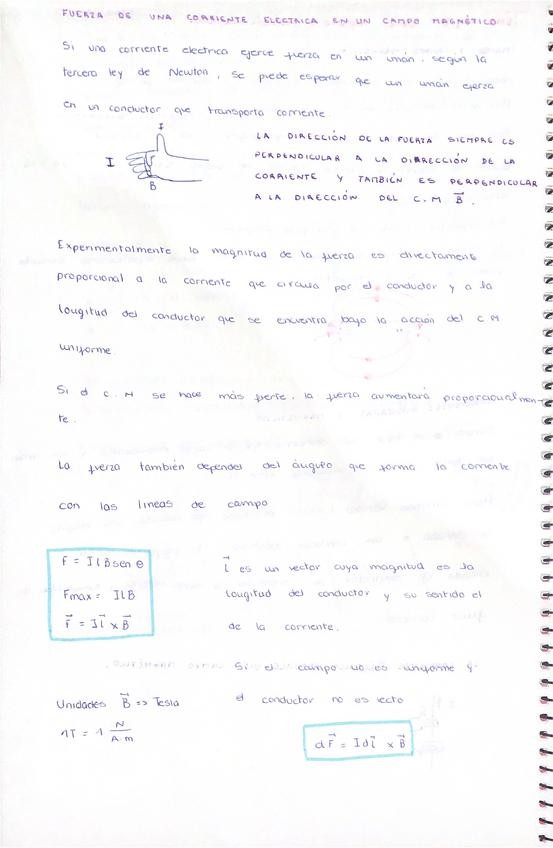 FUERZA DE UNA CORRIENTE ELECTRICA EN UN CAMPO MAGNÉTICO
Si una corriente electrica ejerce fuerza en un imán, según la
tercera ley de Newton, se puede esperar que un imán ejerza
en un conductor que transporta corriente.
I
I
B
LA DIRECCIÓN DE LA FUERZA SIEMPRE ES
PERPENDICULAR A LA DIRRECCIÓN DE LA
CORRIENTE Y TAMBIÉN ES PERPENDICULAR
A LA DIRECCIÓN DEL C.M B⃗.
Experimentalmente la magnitud de la fuerza es directament
proporcional a la corriente que circula por el conductor y a la
longitud del conductor que se encuentra bajo la acción del C.M
uniforme.
Si el C.M se hace más fuerte, la fuerza aumentará proporcionalmen-
te.
La fuerza también depender del ángulo que forma la corriente
con las lineas de campo
F = I l B sen θ
Fmax = I l B
F⃗ = I l⃗ x B⃗
l⃗ es un vector cuya magnitud es la
longitud del conductor y su sentido el
de la corriente.
Si el campo no es uniforme y
el conductor no es recto
dF⃗ = I dl⃗ x B⃗
Unidades B⃗ => Tesla
1T = 1 N / A·m